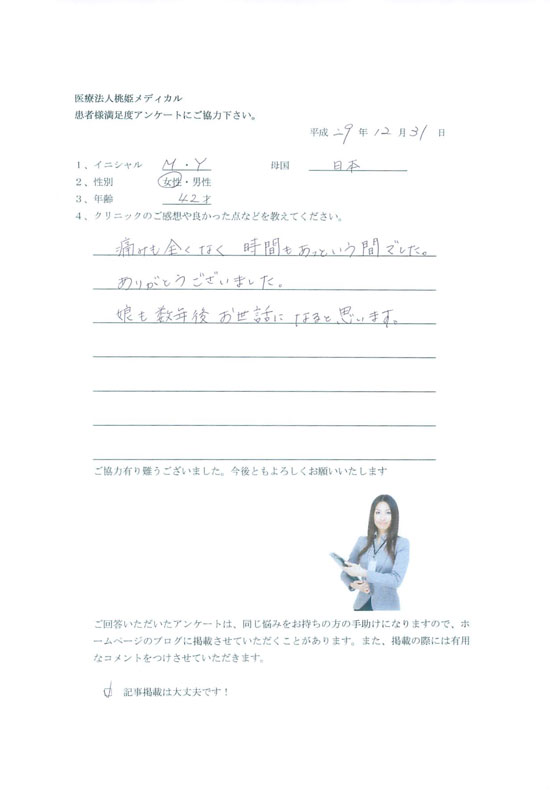 医療法人桃姫メディカル
患者様満足度アンケートにご協力下さい。
平成 29 年 12 月 31 日
1、イニシャル M・Y 母国 日本
2、性別 女性・男性
3、年齢 42才
4、クリニックのご感想や良かった点などを教えてください。
痛みも全くなく 時間もあっという間でした。
ありがとうございました。
娘も数年後 お世話に なると思います。
ご協力有り難うございました。今後ともよろしくお願いいたします
ご回答いただいたアンケートは、同じ悩みをお持ちの方の手助けになりますので、ホ
ームページのブログに掲載させていただくことがあります。また、掲載の際には有用
なコメントをつけさせていただきます。
記事掲載は大丈夫です！